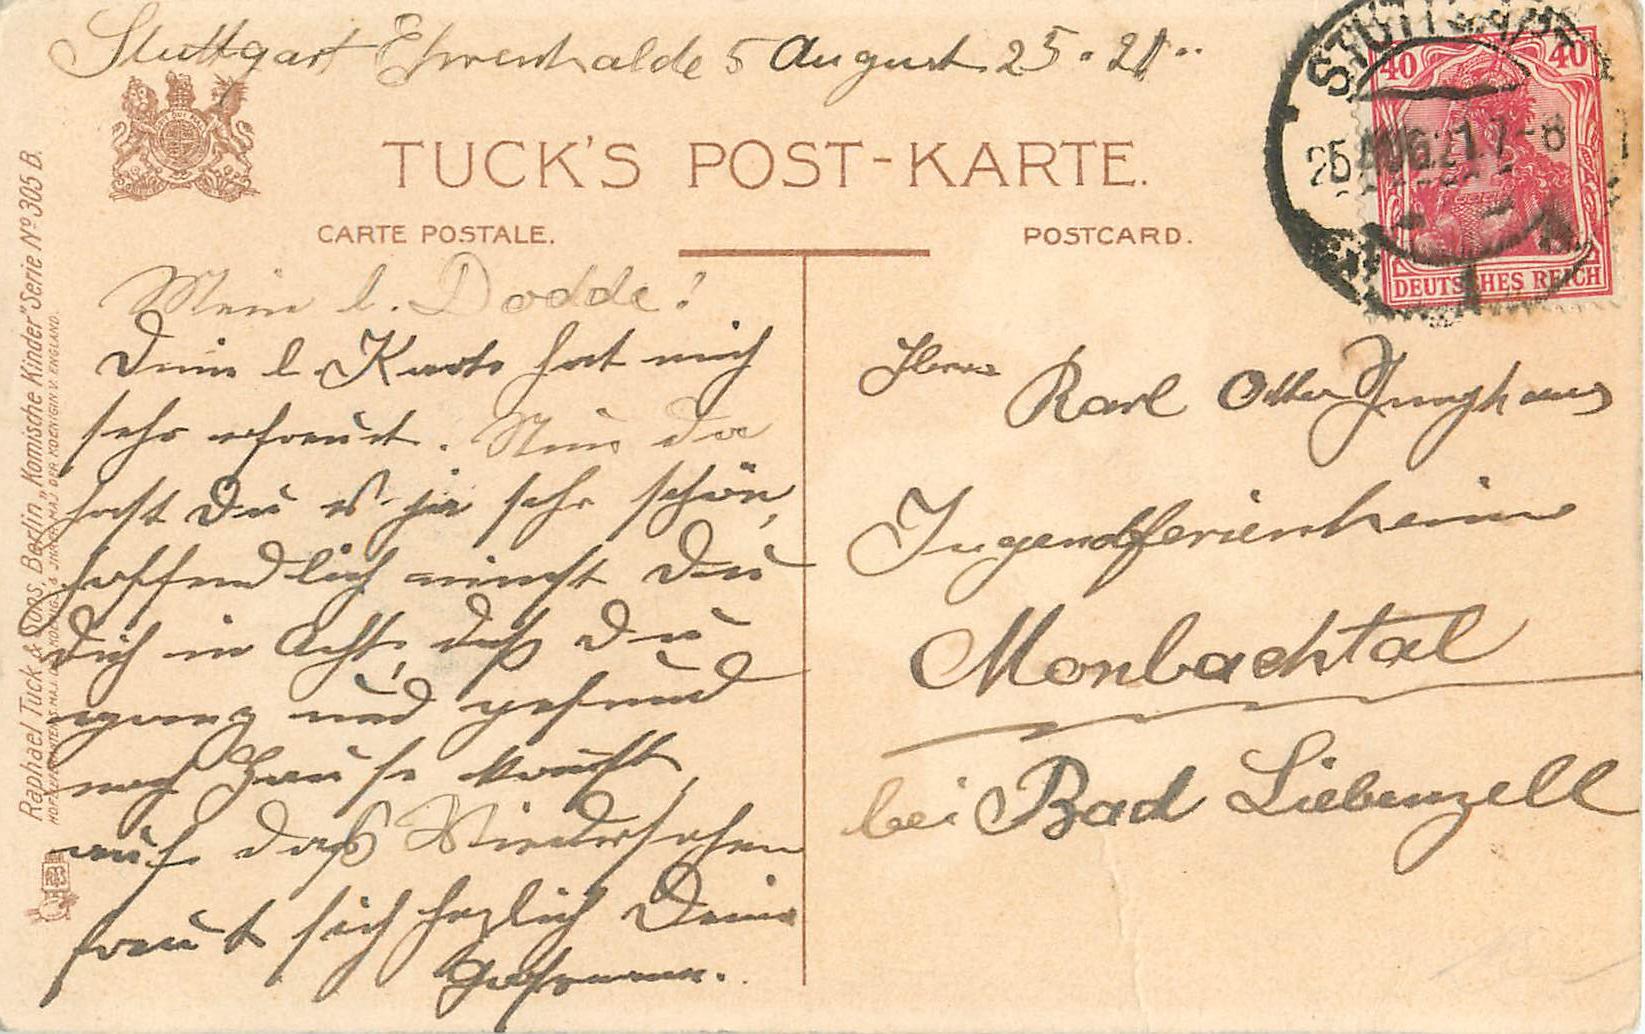 Stuttgart Ehrenhalde 5 August 25. 21.
TUCK'S POST-KARTE.
CARTE POSTALE. POSTCARD.
STUTTGART
25 AUG. 21. 7-8
40 40
DEUTSCHES REICH
Raphael Tuck & Sons, Berlin „Komische Kinder" Serie Nº 305 B.
HOFLIEFERANTEN S. MAJ. D. KÖNIG & IHRER MAJ. DER KOENIGIN V. ENGLAND.
Mein l. Dodde!
Deine l. Karte hat mich
sehr erfreut. Nun da
hast Du es ja sehr schön,
hoffendlich nimst Du
Dich in Acht, daß Du
und gesund
nach Hause kommst,
auf daß Wiedersehen
freut sich herzlich Deine
Herrn Karl Otto Junghans
Jugendferienheim
Monbachtal
bei Bad Liebenzell